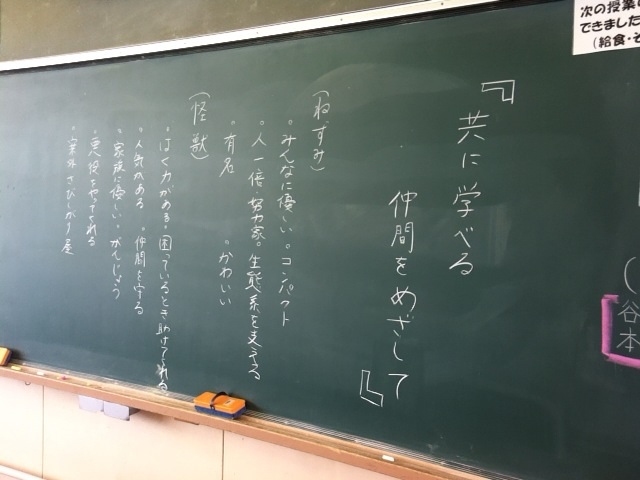 次の授業
できました
(給食・そ
谷本
『共に学べる
仲間をめざして』
(ねずみ)
・みんなに優しい ・コンパクト
・人一倍努力家 ・生態系を支える
・有名 ・かわいい
(怪獣)
・はく力がある ・困っているとき助けてくれる
・人気がある ・仲間を守る
・家族に優しい ・がんじょう
・悪役をやってくれる
・案外さびしがり屋